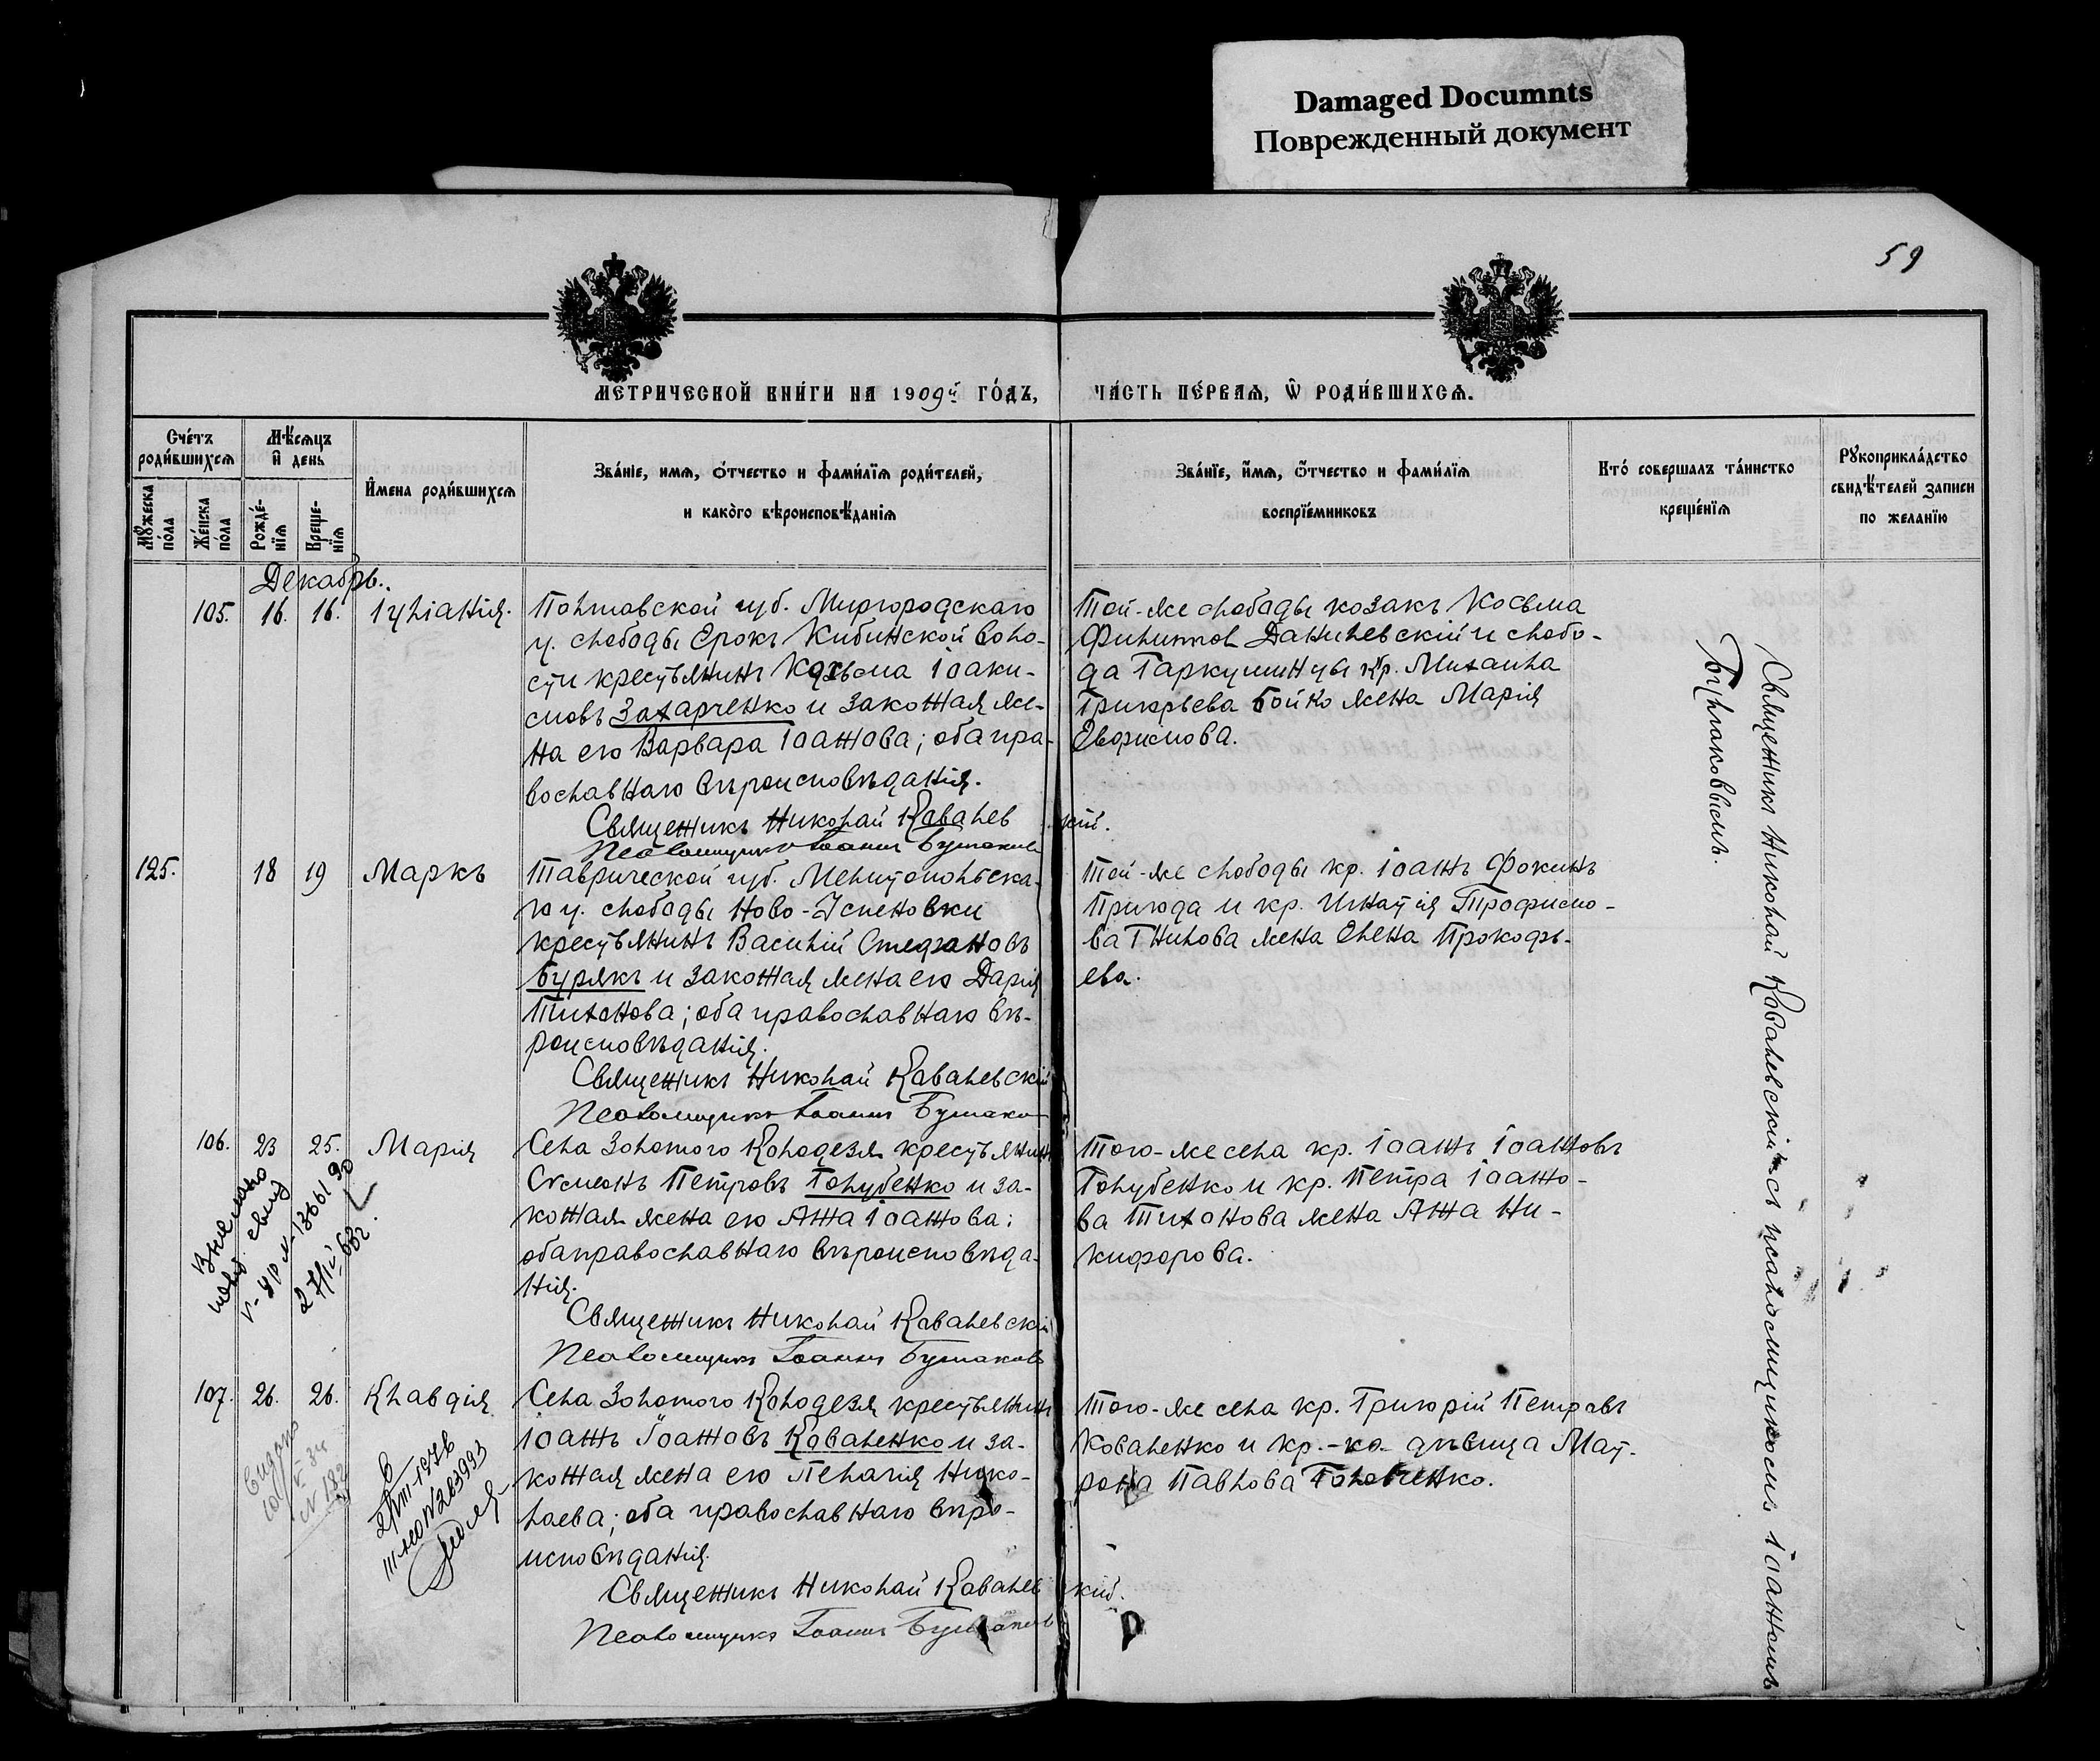 Damaged Documnts
Поврежденный документ
59
МЕТРИЧЕСКОЙ КНИ́ГИ НА 1909й ГО́ДЪ,
ЧА́СТЬ ПЕ́РВАѦ, Ѽ РОДИ́ВШИХСѦ.
Сче́тъ
роди́вшихсѧ
Мѣ́сѧцъ
и҆ день
Мꙋ́жеска
по́ла
Же́нска
по́ла
Рожде́-
нїѧ
Креще-
нїѧ
И҆мена роди́вшихсѧ
Зва́нїе, имѧ, о́тчество и фами́лїѧ роди́телей,
и како́го вѣроисповѣ́данїѧ
Зва́нїе, и҆мѧ, о́тчество и фами́лїѧ
воспрїе́мниковъ
Кто́ совершалъ та́инство
креще́нїѧ
Рꙋкоприкла́дство
свидѣ́телей записи
по желанїю
Декабрь.
105. 16. 16. Іуліанія.
Полтавской губ. Миргородскаго
у. слободы Ерокъ Кибинской воло-
сти крестьянинъ Косьма Іоаки-
мовъ Захарченко и законная же-
на его Варвара Іоаннова; оба пра-
вославнаго вѣроисповѣданія.
Священникъ Николай Ковалевскій.
Псаломщикъ Іоаннъ Бугмаковъ
Той-же слободы козакъ Косьма
Филиппов Данилевскій и слобо-
да Гаркушинцы кр. Михаила
Григорьева Бойко жена Марія
Евфимова.
125. 18 19 Маркъ
Таврической губ. Мелитопольска-
го у. слободы Ново-Успеновки
крестьянинъ Василій Стефановъ
Бурякъ и законная жена его Дарія
Тихонова; оба православнаго вѣ-
роисповѣданія.
Священникъ Николай Ковалевскій
Псаломщикъ Іоаннъ
Той-же слободы кр. Іоаннъ Фокинъ
Пригода и кр. Игнатія Трофимо-
ва Гнилова жена Елена Прокофь-
ева.
106. 23 25. Марія
Села Золотого Колодезя крестьянинъ
Симеонъ Петровъ Голубенко и за-
конная жена его Анна Іоаннова;
оба православнаго вѣроисповѣда-
нія.
Священникъ Николай Ковалевскій
Псаломщикъ Іоаннъ
Того-же села кр. Іоаннъ Іоанновъ
Голубенко и кр. Петра Іоанно-
ва Тихонова жена Анна Ни-
кифорова.
107. 26. 26. Клавдія
Села Золотого Колодезя крестьянинъ
Іоаннъ Іоанновъ Коваленко и за-
конная жена его Пелагія Нико-
лаева; оба православнаго вѣро-
исповѣданія.
Священникъ Николай Ковалевскій.
Псаломщикъ Іоаннъ
Того-же села кр. Григорій Петровъ
Коваленко и кр.-ка дѣвица Мат-
рона Павлова Головченко.
Священникъ Николай Ковалевскій съ псаломщикомъ Іоанномъ